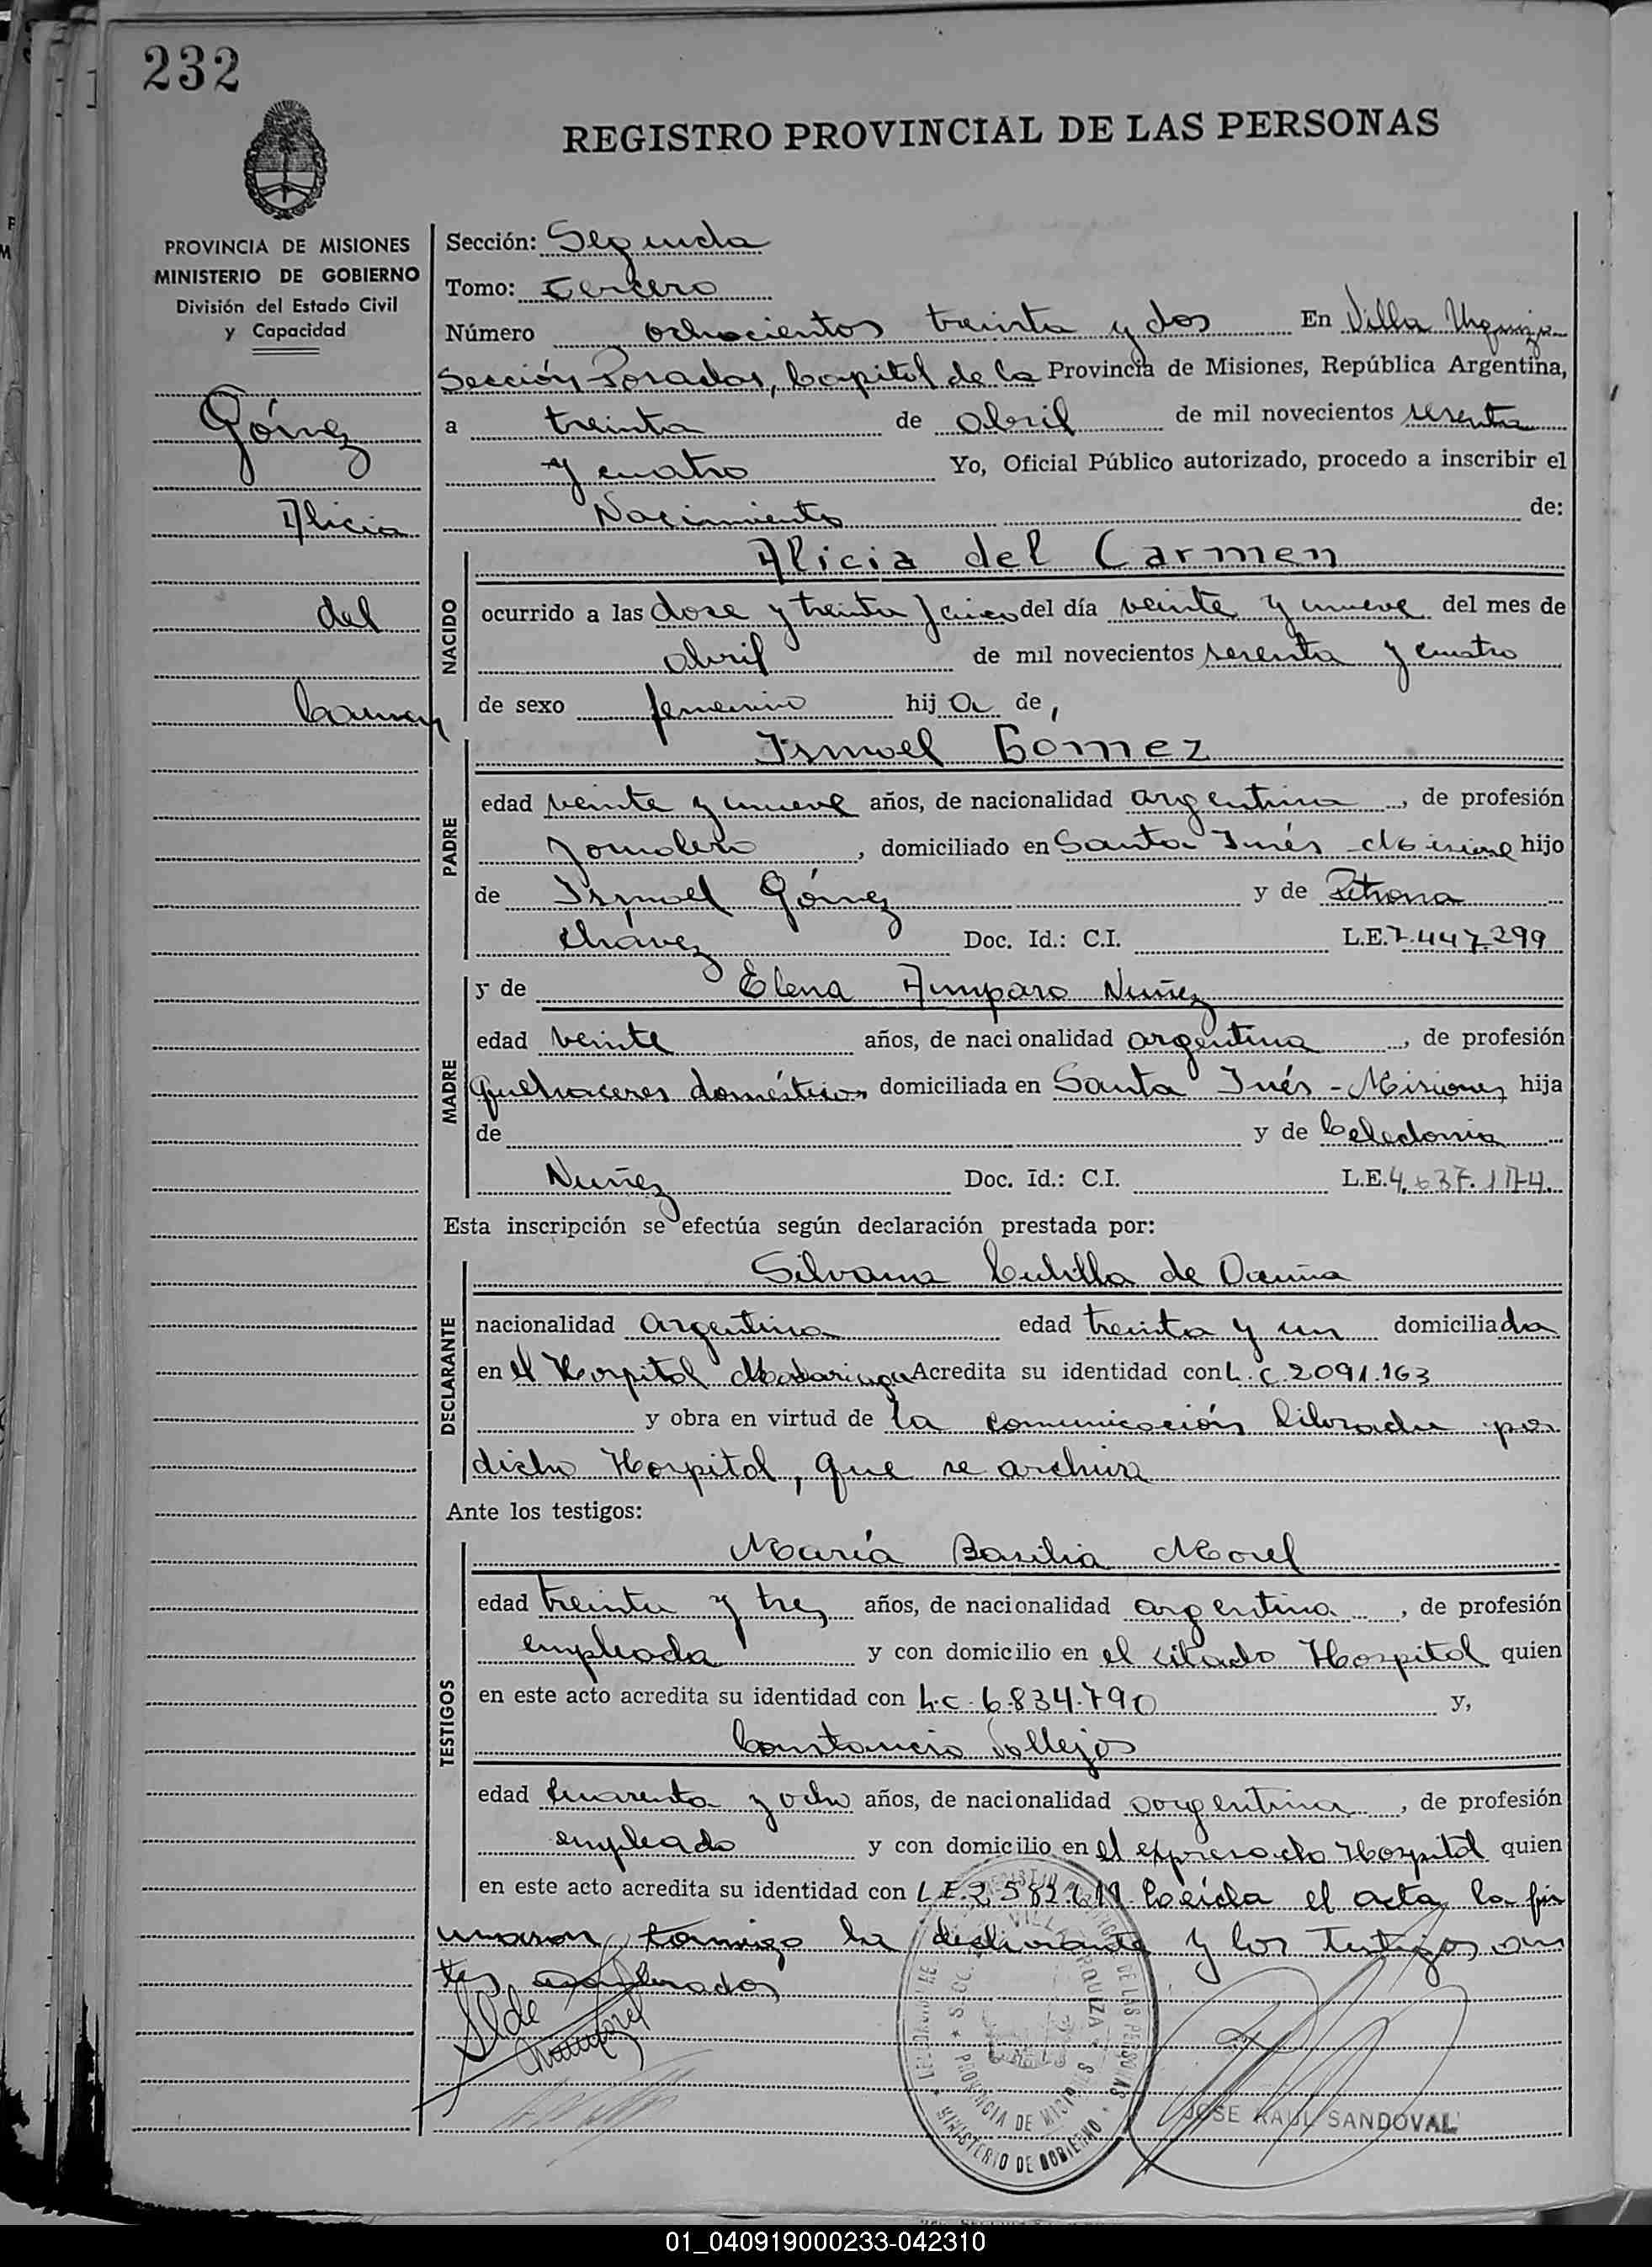 232
REGISTRO PROVINCIAL DE LAS PERSONAS
PROVINCIA DE MISIONES
MINISTERIO DE GOBIERNO
División del Estado Civil
y Capacidad
Gómez
Alicia
del
Carmen
Sección: Segunda
Tomo: Tercero
Número ochocientos treinta y dos En Villa Urquiza
Sección Posadas, Capital de la Provincia de Misiones, República Argentina,
a treinta de abril de mil novecientos sesenta
y cuatro Yo, Oficial Público autorizado, procedo a inscribir el
Nacimiento de:
NACIDO
Alicia del Carmen
ocurrido a las doce y treinta y cinco del día veinte y nueve del mes de
abril de mil novecientos sesenta y cuatro
de sexo femenino hija de,
PADRE
Ismael Gómez
edad veinte y nueve años, de nacionalidad argentina, de profesión
Jornalero, domiciliado en Santa Inés - Misiones hijo
de Ismael Gómez y de Petrona
Chávez Doc. Id.: C.I. L.E. 7.447.299
MADRE
y de Elena Amparo Nuñez
edad veinte años, de nacionalidad argentina, de profesión
quehaceres domésticos domiciliada en Santa Inés - Misiones hija
de y de Celedonia
Nuñez Doc. Id.: C.I. L.E. 4.637.174.
Esta inscripción se efectúa según declaración prestada por:
DECLARANTE
Silvana Cubilla de Ocuña
nacionalidad argentina edad treinta y un domiciliada
en el Hospital Madariaga Acredita su identidad con L.C. 2091.163
y obra en virtud de la comunicación librada por
dicho Hospital, que se archiva
Ante los testigos:
TESTIGOS
María Basilia Morel
edad treinta y tres años, de nacionalidad argentina, de profesión
empleada y con domicilio en el citado Hospital quien
en este acto acredita su identidad con L.C. 6.834.790 y,
Constancio Vallejos
edad cuarenta y ocho años, de nacionalidad argentina, de profesión
empleado y con domicilio en el expresado Hospital quien
en este acto acredita su identidad con L.E. Leída el acta, la fir
maron conmigo la declarante y los testigos an
tes nombrados
VILLA URQUIZA
PROVINCIA DE MISIONES
DE LAS PERSONAS
MINISTERIO DE GOBIERNO
JOSE RAUL SANDOVAL
01_040919000233-042310